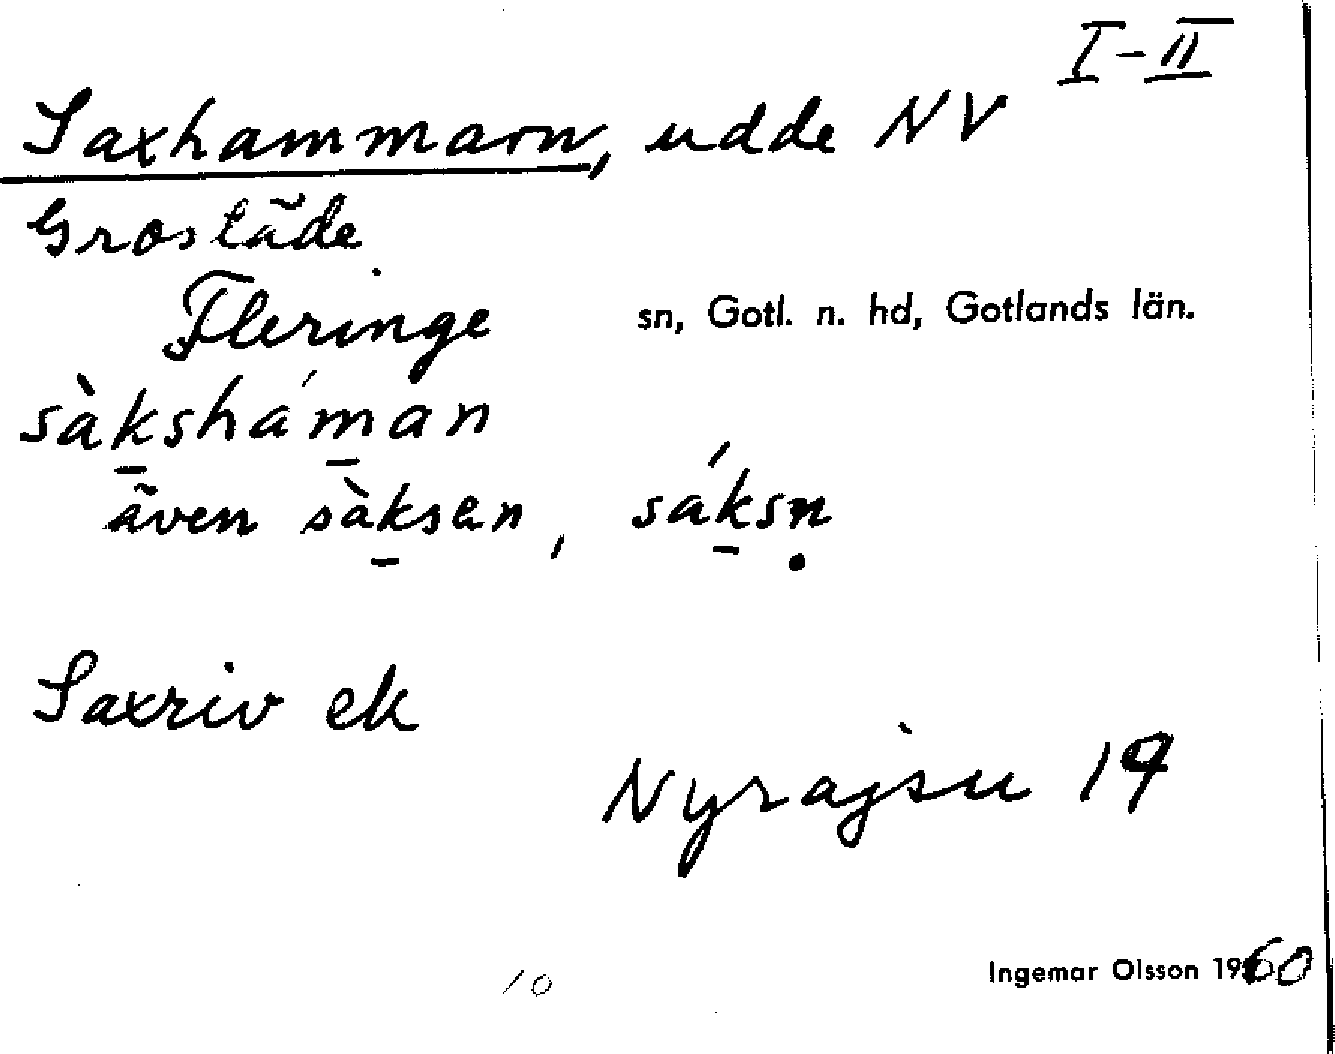 I-II
Saxhammarn, udde NV
Grostäde
Fleringe sn, Gotl. n. hd, Gotlands län.
sàk̲shám̲an
även sàk̲sen, sák̲sṇ
Saxriv ek
Nyrajsu 19
Ingemar Olsson 1960
10